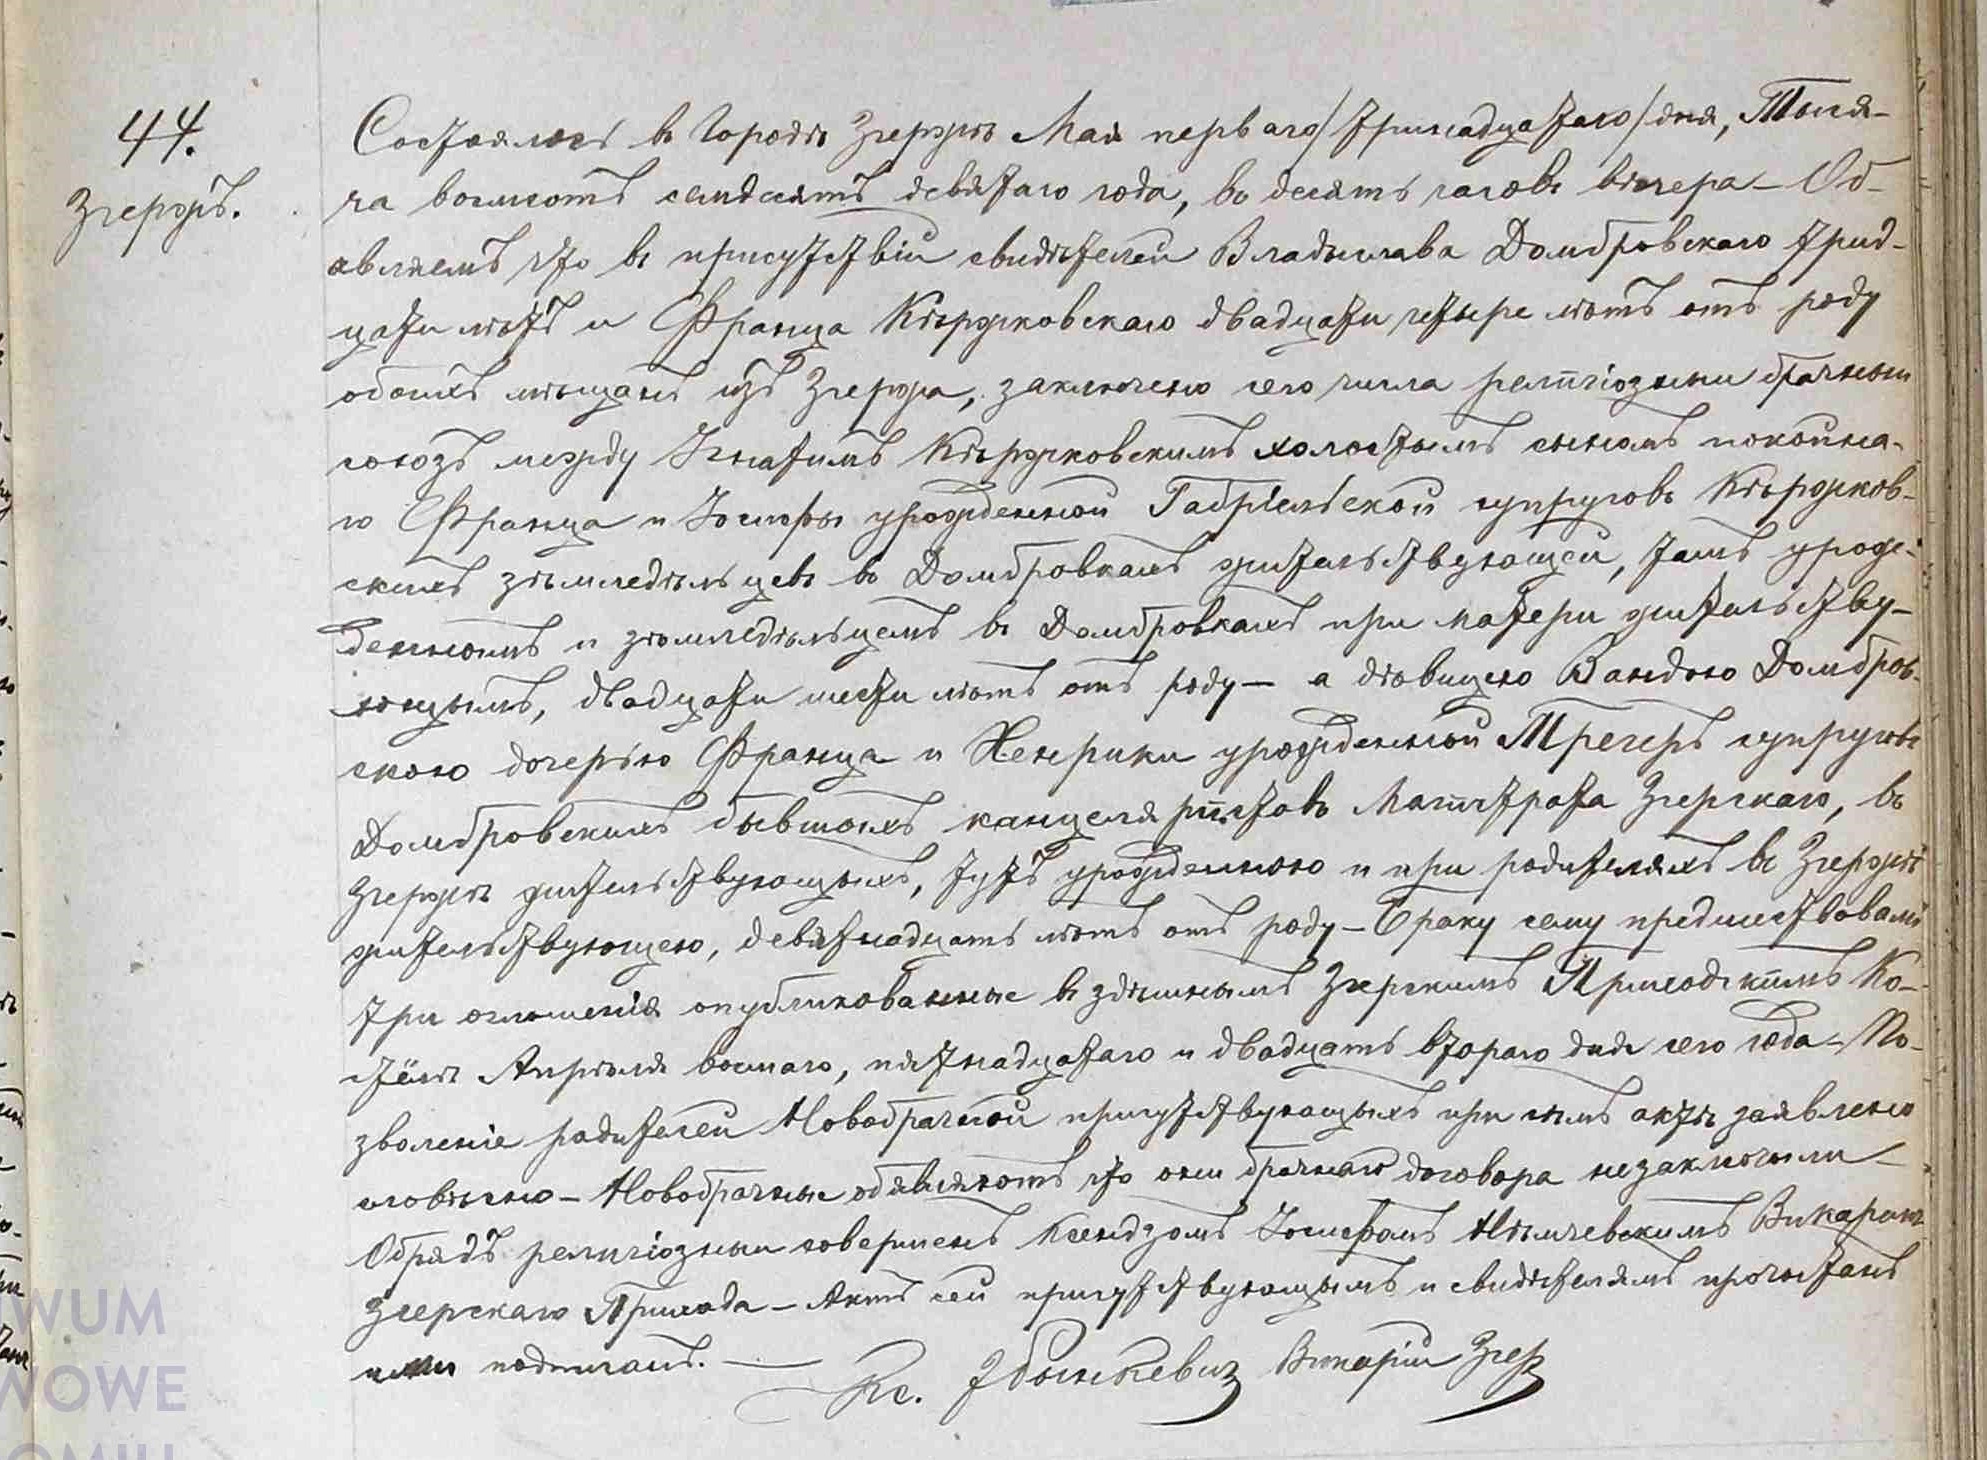 44.
Згержъ.
Состоялось въ Городѣ Згержѣ Мая перваго/тринадцатаго/дня, Тыся-
ча восмсотъ семдесятъ девятаго года, въ десять часовъ вѣчера – Об-
авляемъ что въ присутствіи свидѣтелей Владыслава Домбровскаго трид-
цати лѣтъ и Франца Кѣржковскаго двадцати четыре лѣтъ отъ роду
обоихъ мѣщанъ изъ Згержа, заключено сего числа религіозныи брачныи
союзъ между Игнатимъ Кѣржковскимъ холостымъ сыномъ покойна-
го Франца и Іосифы урожденной Габріельской супруговъ Кѣржков-
скихъ зѣмледѣльцевъ въ Домбровкахъ жительствующей, тамъ урож-
деннымъ и зѣмледѣльцемъ въ Домбровкахъ при матери жительству-
ющымъ, двадцати шести лѣтъ отъ роду – а дѣвицею Вандою Домбров-
скою дочерью Франца и Хенрики урожденной Трегеръ супруговъ
Домбровскихъ бывшыхъ канцеляристовъ Магистрата Згерскаго, въ
Згержѣ жительствующыхъ, тутъ урожденною и при родителяхъ въ Згержѣ
жительствующею, девятнадцать лѣтъ отъ роду – Браку сему предшествовали
три оглошенія опубликованные въ здѣшнымъ Згерскимъ Приходскимъ Ко-
стёлѣ Апрѣля восмаго, пятнадцатаго и двадцать втораго дня сего года – По-
зволеніе родителей Новобрачной присутствующыхъ при сымъ актѣ заявлено
словѣсно – Новобрачные обявляютъ что они брачнаго договора незаключыли –
Обрядъ религіозныи совершенъ Ксендзомъ Іосифомъ Нѣмчевскимъ Викаримъ
Згерскаго Прихода – Актъ сей присутствующымъ и свидѣтелямъ прочытанъ
и подписанъ. — Кс. Викарій Згер
IWUM
WOWE